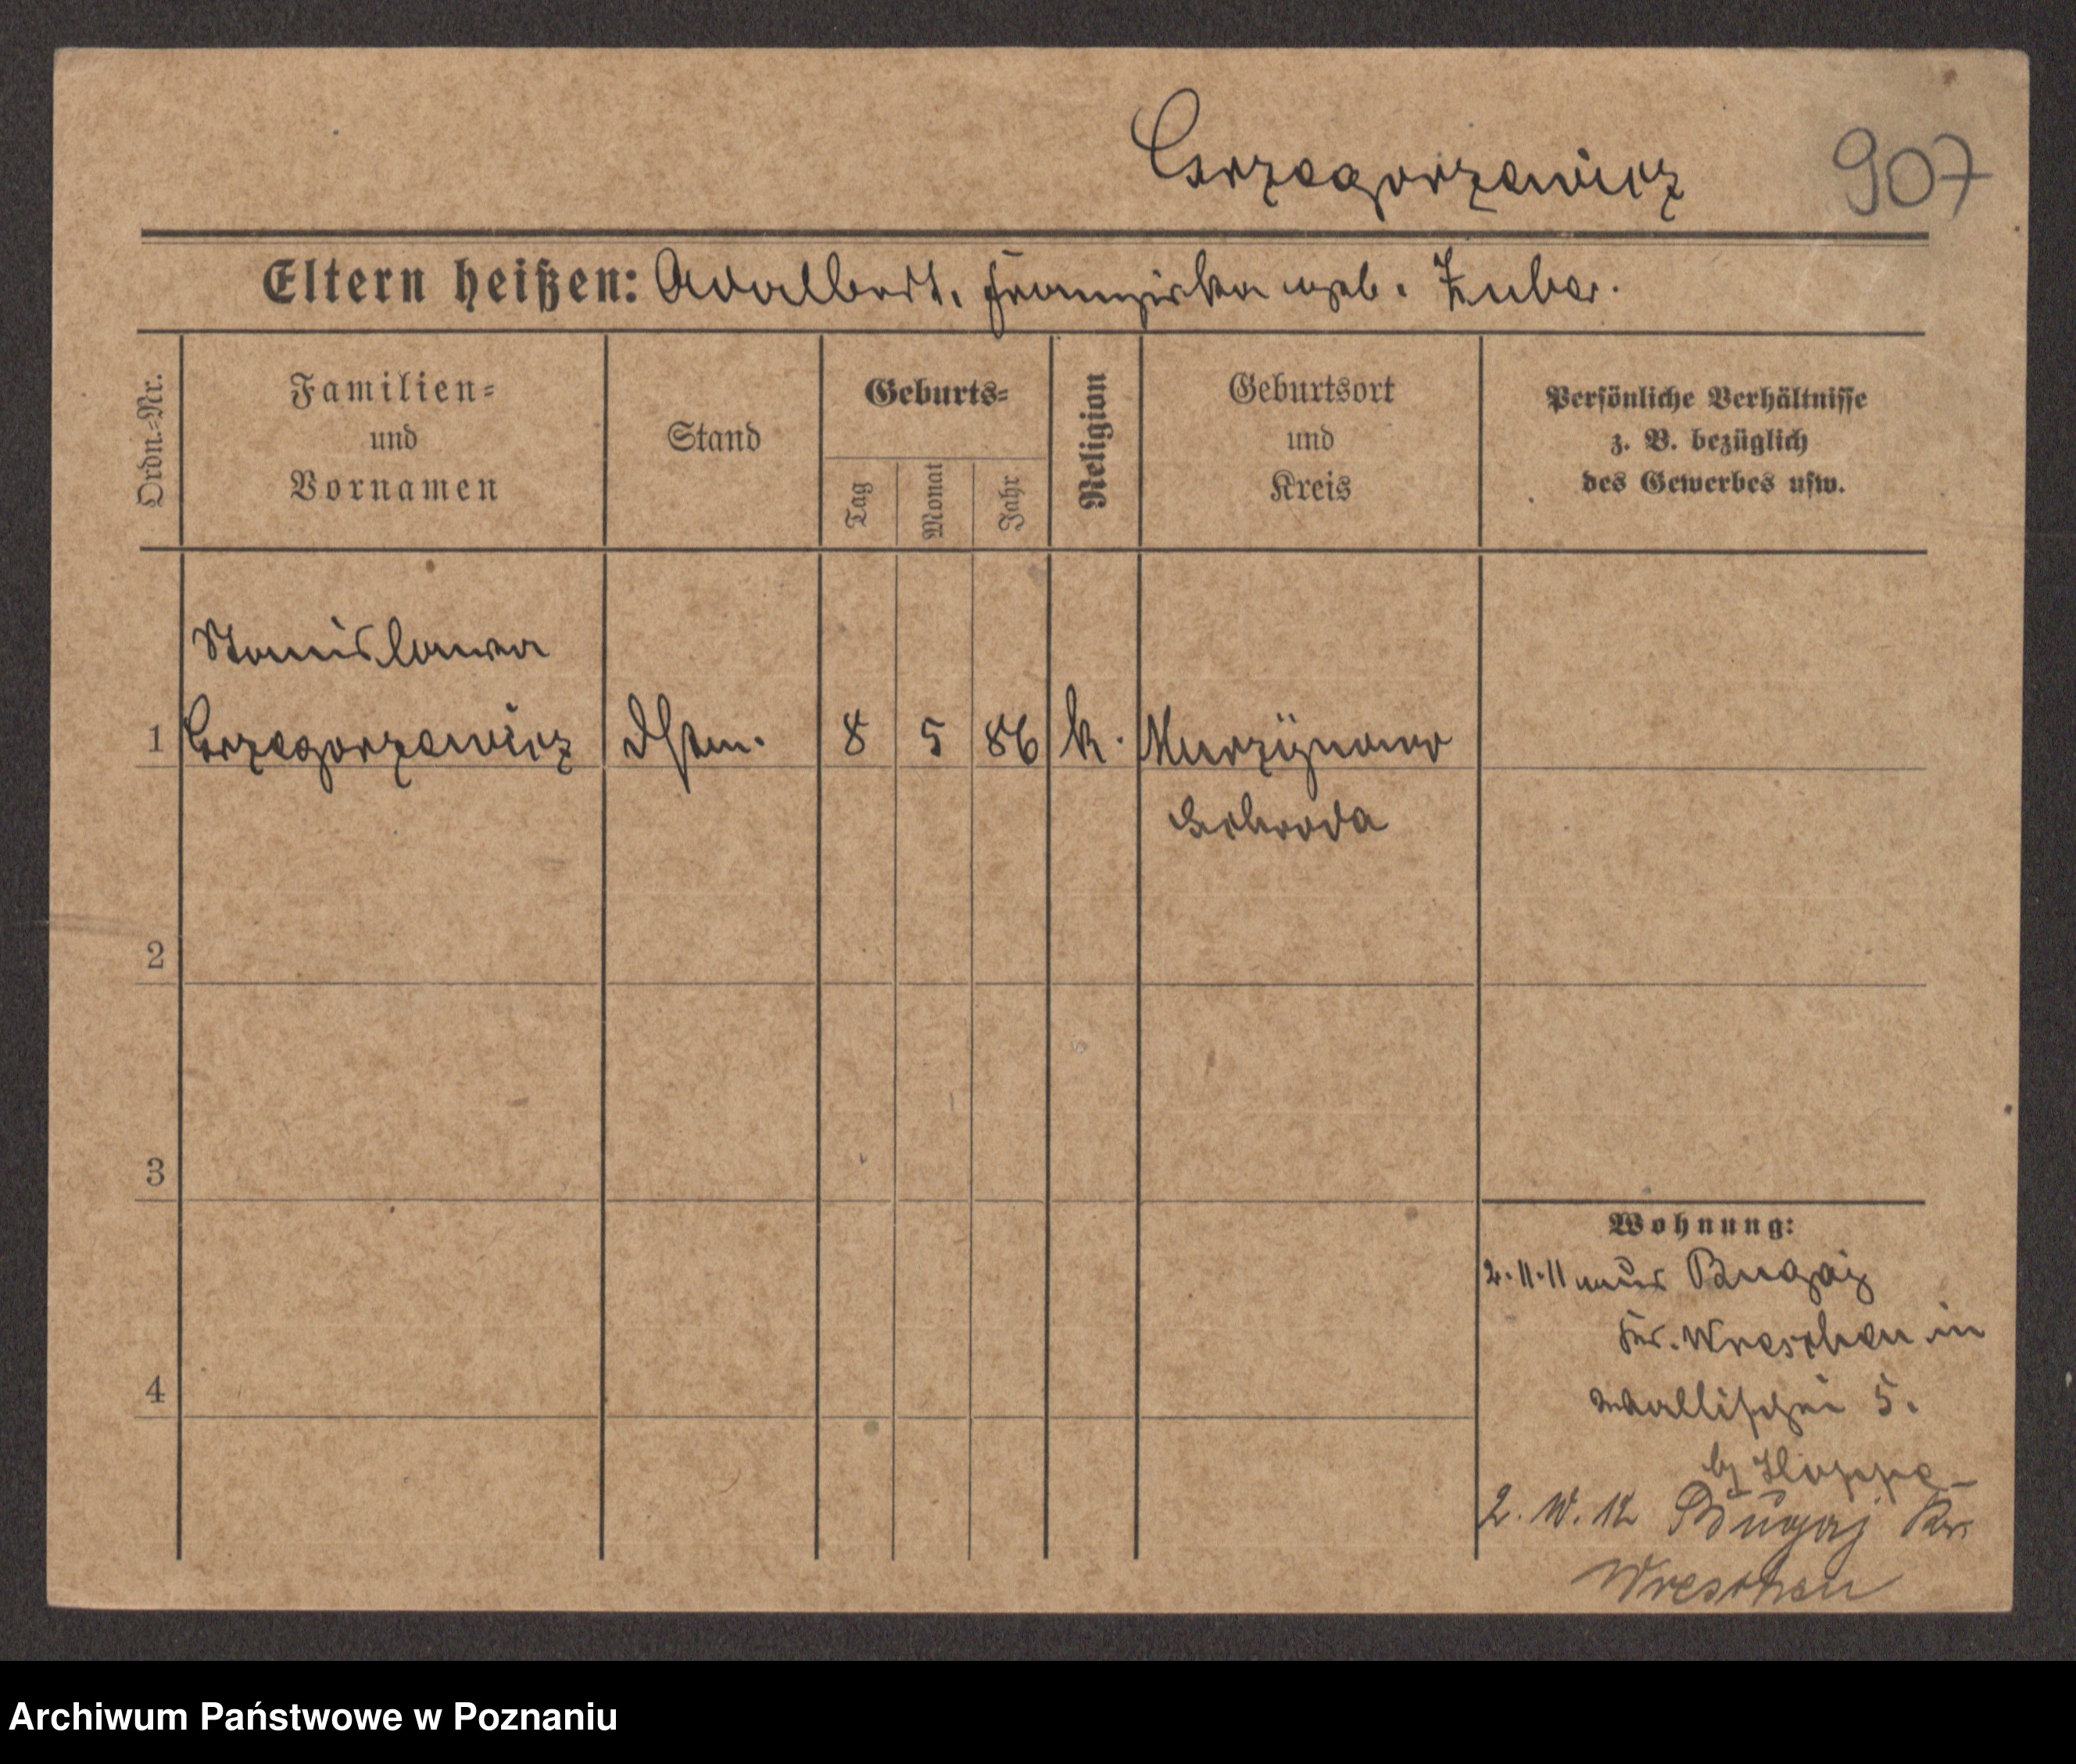 Grzegorzewicz
907
Eltern heißen: Adalbert, Franziska geb. Zuber.
Ordn.-Nr.
Familien-
und
Vornamen
Stand
Geburts-
Tag
Monat
Jahr
Religion
Geburtsort
und
Kreis
Persönliche Verhältnisse
z. B. bezüglich
des Gewerbes usw.
Stanislawa
1 Grzegorzewicz Dstm. 8 5 86 k. Murzynowo
Schroda
2
3
4
Wohnung:
2.11.11 aus Bugaj
Kr. Wreschen in
Wallischei 5.
b/ Hoppe
2. IV. 12 Bugaj Kr.
Wreschen
Archiwum Państwowe w Poznaniu